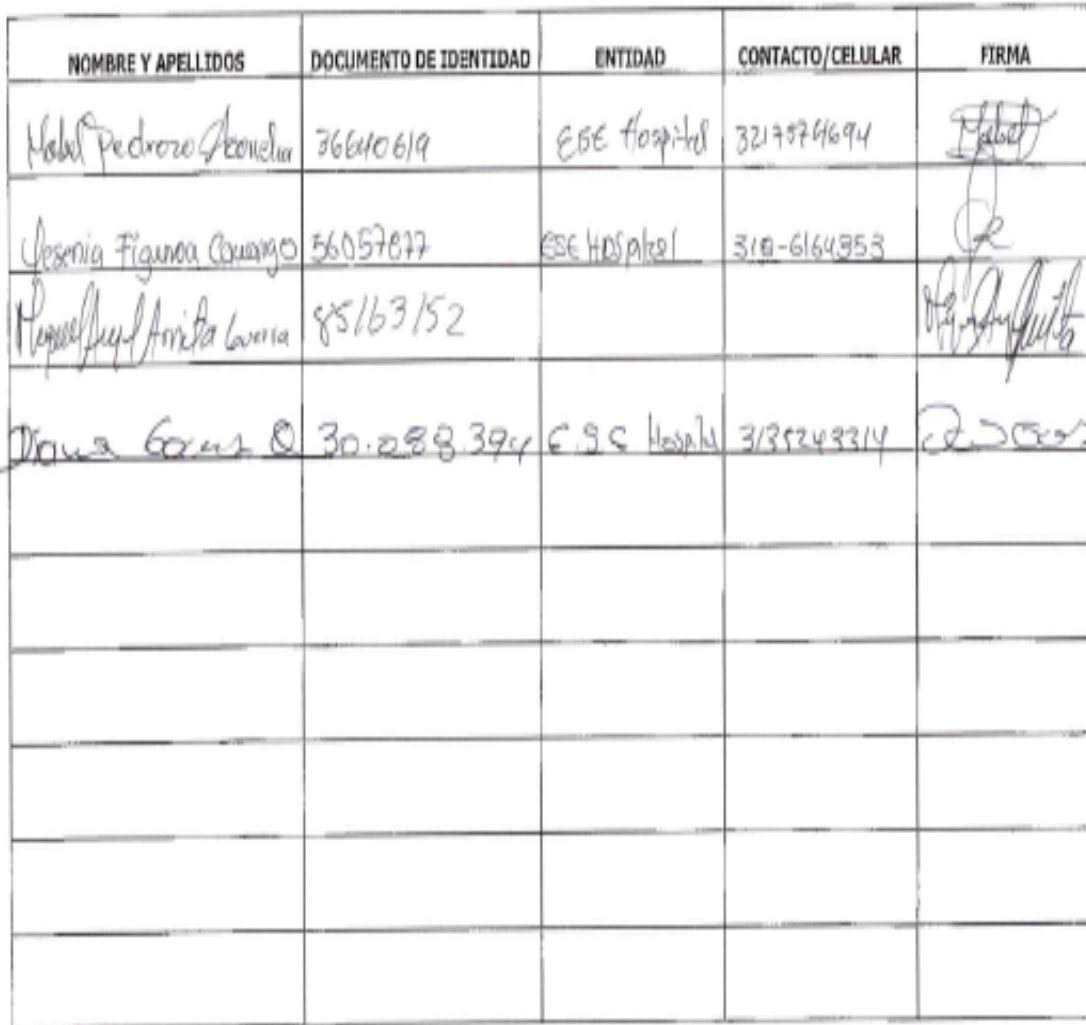 NOMBRE Y APELLIDOS DOCUMENTO DE IDENTIDAD ENTIDAD CONTACTO/CELULAR FIRMA
Mabel Pedrozo 36640619 ESE Hospital Mabel
Yesenia Figueroa Camargo 56057877 ESE Hospital 318-6164353
Miguel Angel Arrieta 85163152
Diana 30.288.394 E.S.E Hospital 3135243314